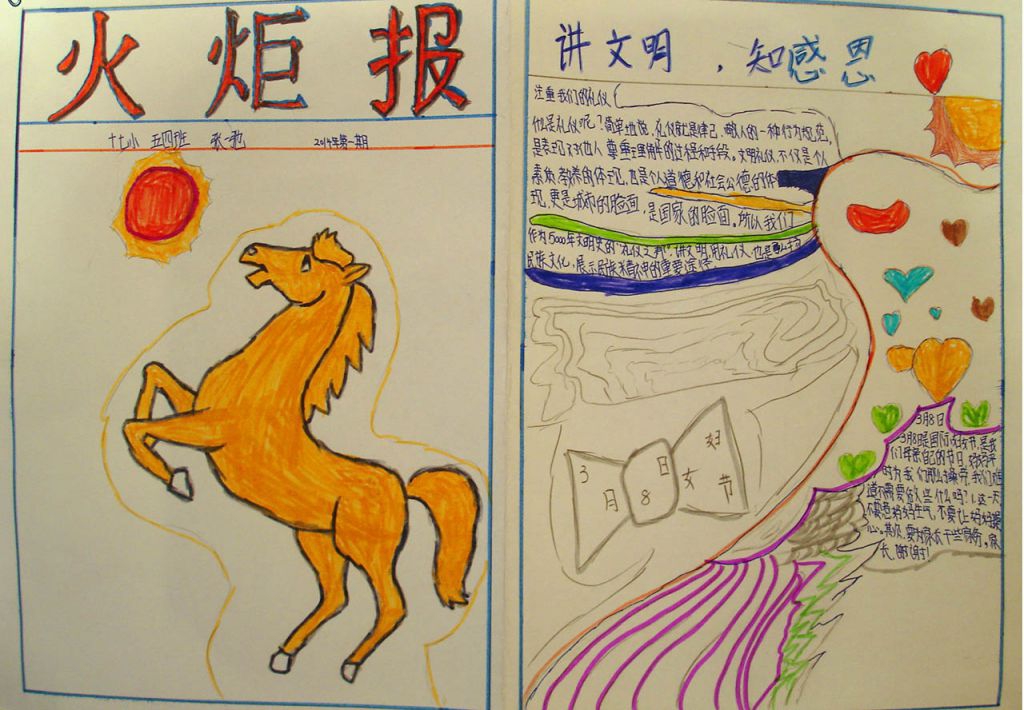 火炬报
十七小 五四班 张 2014年第一期
讲文明，知感恩
注重我们的礼仪
什么是礼仪呢？简单地说，礼仪就是律己、敬人的一种行为规范，
是表现对他人尊重理解的过程和手段。文明礼仪，不仅是个人
素质、教养的体现，也是个人道德和社会公德的体
现，更是城市的脸面，是国家的脸面。所以我们
作为5000年文明史的"礼仪之邦"，讲文明，用礼仪，也是
民族文化，展示民族精神的重要途径。
3月8日妇女节
3月8日
3月8日是国际妇女节，是我
们母亲自己的节日，妈妈平
时为我们那么操劳，我们难
道不需要做些什么吗？1、这一天
不要惹妈妈生气，不要让妈妈操
心。其次，要为家长干些家务。家
长，谢谢！